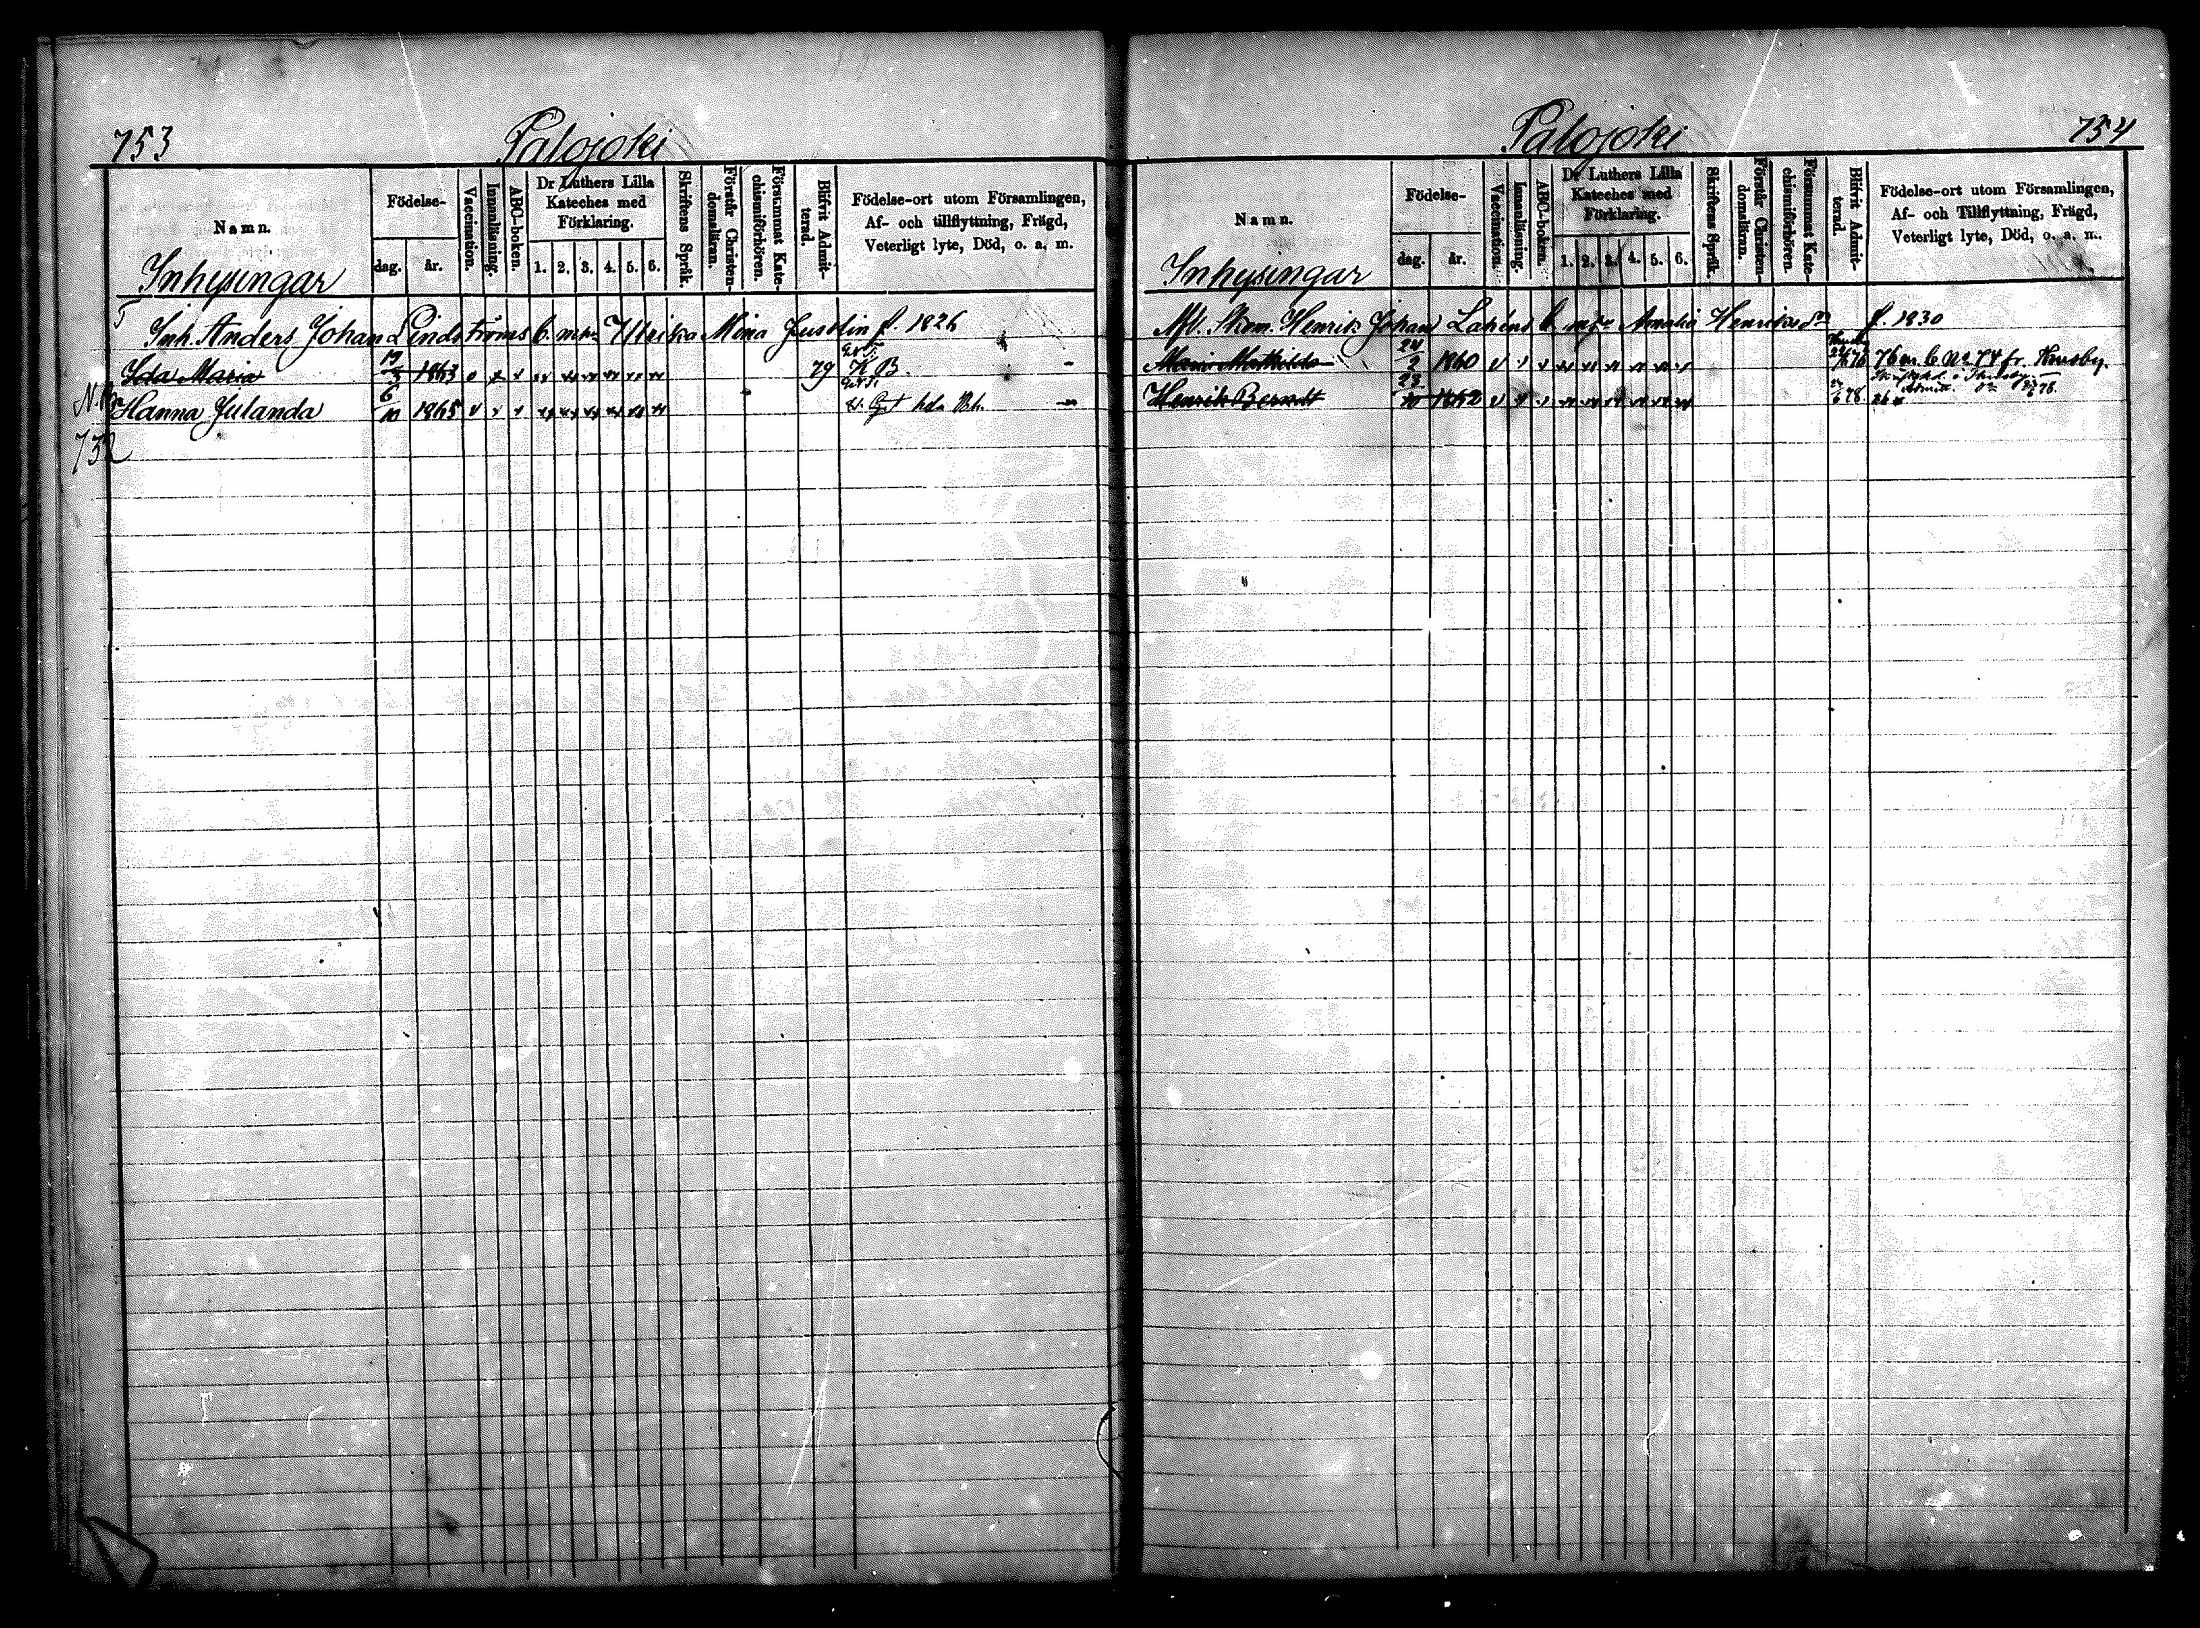 753
Palojoki
Namn.
Födelse-
dag.
år.
Vaccination.
Innanläsning.
ABC-boken.
Dr Luthers Lilla
Kateches med
Förklaring.
1. 2. 3. 4. 5. 6.
Skriftens Språk.
Förstår Christen-
domsläran.
Försummat Kate-
chismiförhören.
Blifvit Admit-
terad.
Födelse-ort utom Församlingen,
Af- och tillflyttning, Frägd,
Veterligt lyte, Död, o. a. m.
Inhysingar
Inh. Anders Johan Lindströms b. m. h. Ulrika Mina Justin f. 1826
Ida Maria 19/3 1863 79
Hanna Julanda 6/10 1865
N.B.
732
Palojoki
754
Namn.
Födelse-
dag.
år.
Vaccination.
Innanläsning.
ABC-boken.
Dr Luthers Lilla
Kateches med
Förklaring.
1. 2. 3. 4. 5. 6.
Skriftens Språk.
Förstår Christen-
domsläran.
Försummat Kate-
chismiförhören.
Blifvit Admit-
terad.
Födelse-ort utom Församlingen,
Af- och Tillflyttning, Frägd,
Veterligt lyte, Död, o. a. m.
Inhysingar
Afl. Skom. Henrik Johan b. Amalia f. 1830
Maria Mathilda 24/2 1860 76 fr. Husby.
Henrik Berndt 23/10 1852 78